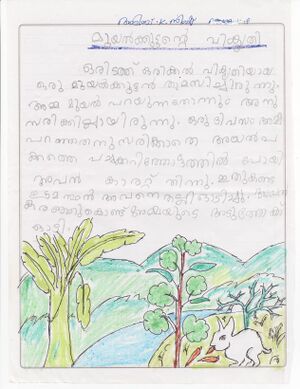 മുയൽക്കുട്ടന്റെ വികൃതി
ഒരിടത്ത് ഒരിക്കൽ വികൃതിയായ
ഒരു മുയൽക്കുട്ടൻ താമസിച്ചിരുന്നു.
അമ്മ മുയൽ പറയുന്നതൊന്നും അനു
സരിക്കില്ലായിരുന്നു. ഒരു ദിവസം അമ്മ
പറഞ്ഞതനുസരിക്കാതെ അയൽപ
ക്കത്തെ പച്ചക്കറിത്തോട്ടത്തിൽ പോയി
അവൻ കാരറ്റ് തിന്നു. ഇതുകണ്ട
ഉടമസ്ഥൻ അവനെ തല്ലി ഓടിച്ചു. അവൻ
കരഞ്ഞുകൊണ്ട് അമ്മയുടെ അടുത്തേക്ക്
ഓടി.